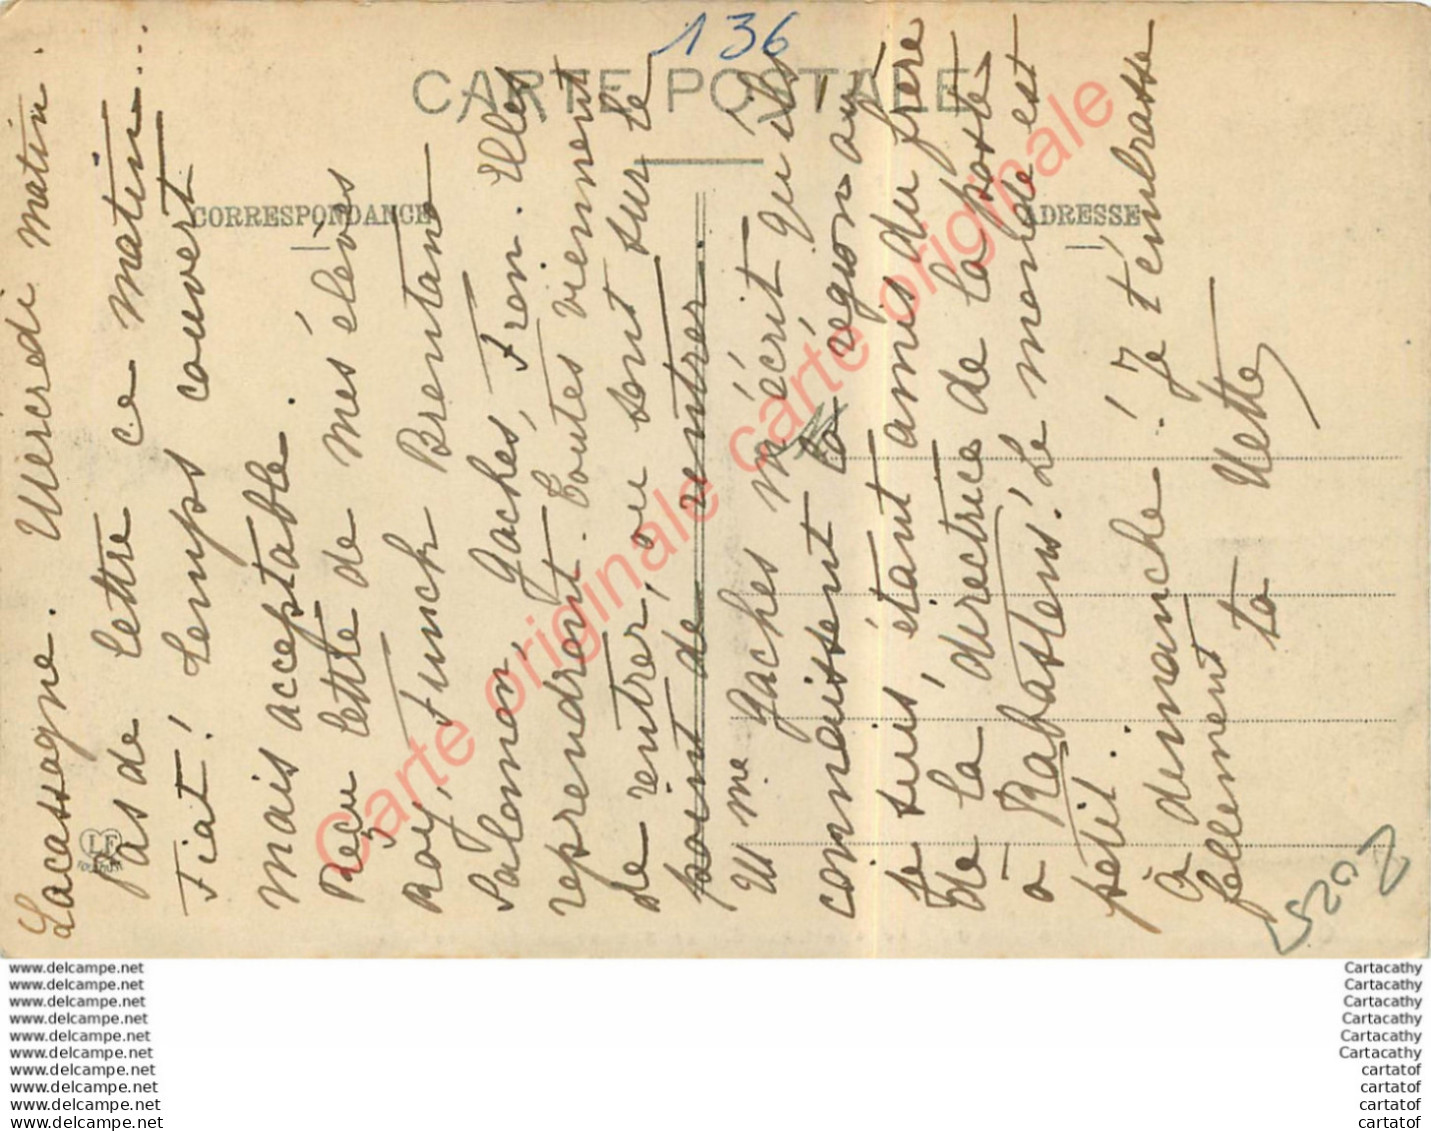 136
CARTE POSTALE
CORRESPONDANCE
ADRESSE
Lacassagne. Mercredi matin.
Pas de lettre ce matin...
Fiat! Temps couvert
mais acceptable.
Reçu lettre de mes élèves
Roy, Funck Brentano
Salomon, Gaches, Fron. Elles
reprendront. Toutes viennent
de rentrer, ou sont sur le
point de rentrer
Mme Gaches m'écrit qu'ils
connaissent la région au
je suis, étant amis du frère
de la directrice de la poste
à Rabastens! Le monde est
petit.
À dimanche! Je t'embrasse
follement ta Nette
LF
5202
Carte originale carte originale
www.delcampe.net
www.delcampe.net
www.delcampe.net
www.delcampe.net
www.delcampe.net
www.delcampe.net
www.delcampe.net
www.delcampe.net
www.delcampe.net
www.delcampe.net
Cartacathy
Cartacathy
Cartacathy
Cartacathy
Cartacathy
Cartacathy
cartatof
cartatof
cartatof
cartatof